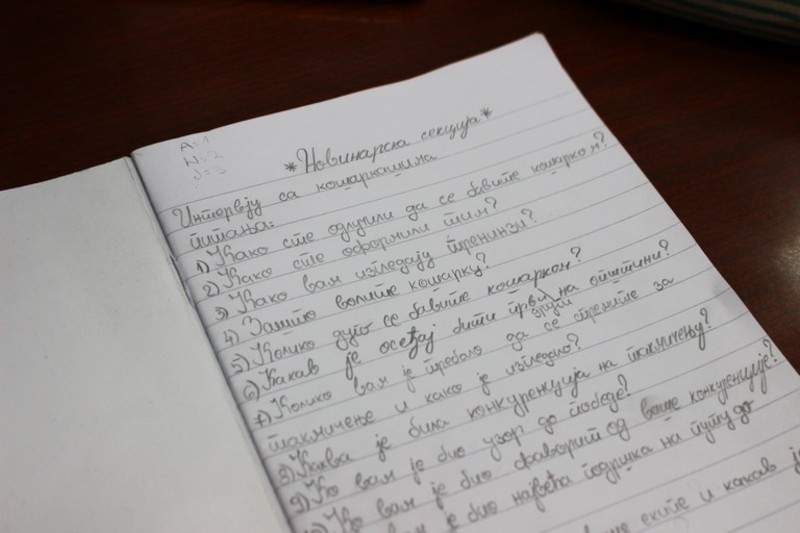 A=1
N=2
J=3
*Новинарска секција*
Интервју са кошаркашима
питања:
1) Како сте одлучили да се бавите кошарком?
2) Како сте оформили тим?
3) Како вам изгледају тренинзи?
4) Зашто волите кошарку?
5) Колико дуго се бавите кошарком?
6) Какав је осећај бити први на општини?
други
7) Колико вам је требало да се спремите за
такмичење и како је изгледало?
8) Каква је била конкуренција на такмичењу?
9) Ко вам је био узор до победе?
Ко вам је био фаворит од ваше конкуренције?
вам је био највећа подршка на путу до
екипе и какав је